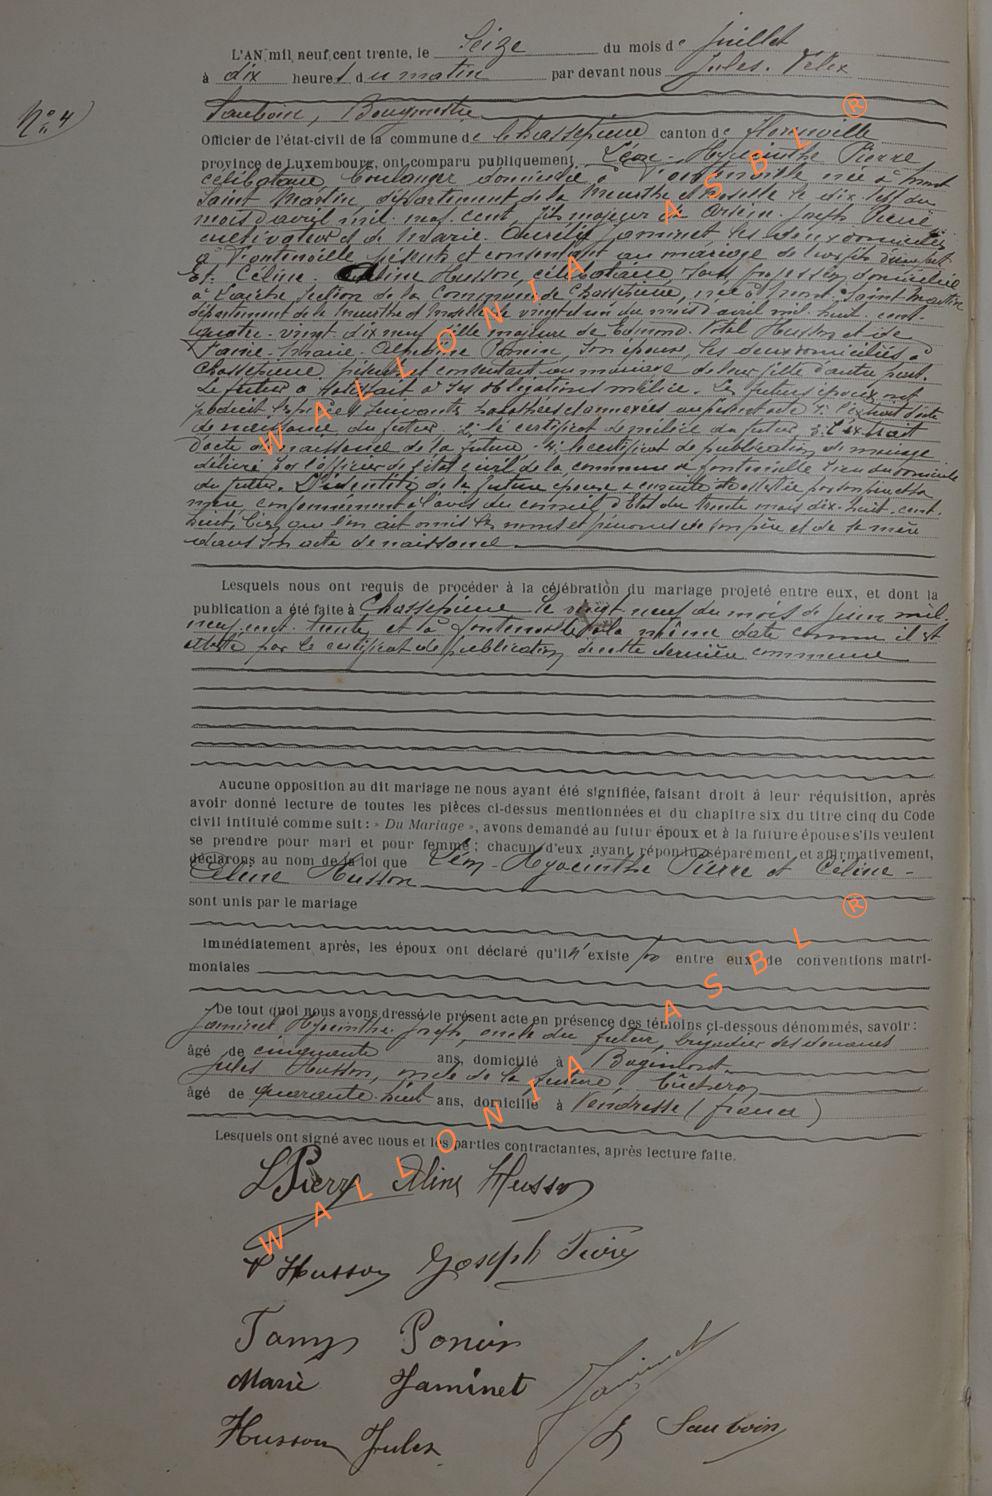 L'AN mil neuf cent trente, le Seize du mois de juillet
à dix heures du matin par devant nous Jules. Félix
N° 4
Sauboin, Bourgmestre
Officier de l'état-civil de la commune de Chassepierre canton de Florenville
province de Luxembourg, ont comparu publiquement Léon-Hyacinthe Pierre
célibataire boulanger domicilié à né à Mont
Saint Martin, département de la Meurthe et Moselle le dix-sept du
mois d'avril mil neuf cent, fils majeur de Joseph Pierre
cultivateur et de Marie. Aurélie Jaminet les deux domiciliés
à Fontenoille présents et consentant au mariage de leur fils d'une part
Et Céline. Aline Husson, célibataire, sans profession domiciliée
à section de la Commune de Chassepierre, née à Mont-Saint-Martin
département de la Meurthe et Moselle le vingt un du mois d'avril mil huit cent
quatre-vingt dix neuf fille majeure de Edmond. Vital Husson et de
Marie-Alphonsine Poncin, son épouse, les deux domiciliés à
Chassepierre présents et consentant au mariage de leur fille d'autre part.
Le futur a satisfait à ses obligations de milice. Les futurs époux ont
produit les pièces suivantes paraphées et annexées au présent acte 1. l'extrait d'acte
de naissance du futur. 2. le certificat de milice du futur 3. L'extrait
d'acte de naissance de la future. 4. le certificat de publication de mariage
délivré par l'officier de l'état civil de la commune de Fontenoille lieu du domicile
du futur. L'identité de la future épouse a ensuite été attestée par son père et sa
mère, conformément à l'avis du conseil d'Etat du trente mars dix-huit-cent
huit, bien que l'on ait omis les noms et prénoms de son père et de sa mère
dans son acte de naissance
Lesquels nous ont requis de procéder à la célébration du mariage projeté entre eux, et dont la
publication a été faite à Chassepierre le vingt neuf du mois de juin mil
neuf cent trente et à Fontenoille à la même date comme il est
attesté par le certificat de publication de cette dernière commune
Aucune opposition au dit mariage ne nous ayant été signifiée, faisant droit à leur réquisition, après
avoir donné lecture de toutes les pièces ci-dessus mentionnées et du chapitre six du titre cinq du Code
civil intitulé comme suit : « Du Mariage », avons demandé au futur époux et à la future épouse s'ils veulent
se prendre pour mari et pour femme ; chacun d'eux ayant répondu séparément et affirmativement,
déclarons au nom de la loi que Léon-Hyacinthe Pierre et Céline-
Aline Husson
sont unis par le mariage
Immédiatement après, les époux ont déclaré qu'il n'existe pas entre eux de conventions matri-
moniales
De tout quoi nous avons dressé le présent acte en présence des témoins ci-dessous dénommés, savoir :
Jaminet Hyacinthe-Joseph, oncle du futur, brigadier des douanes
âgé de cinquante ans, domicilié à Bagimont
Jules Husson, oncle de la future, bûcheron
âgé de quarante-huit ans, domicilié à Vendresse (France)
Lesquels ont signé avec nous et les parties contractantes, après lecture faite.
L Pierre Aline Husson
V Husson Joseph Pierre
Poncin
Marie Jaminet Jaminet
Husson Jules J Sauboin
WALLONIA ASBL ®
WALLONIA ASBL ®